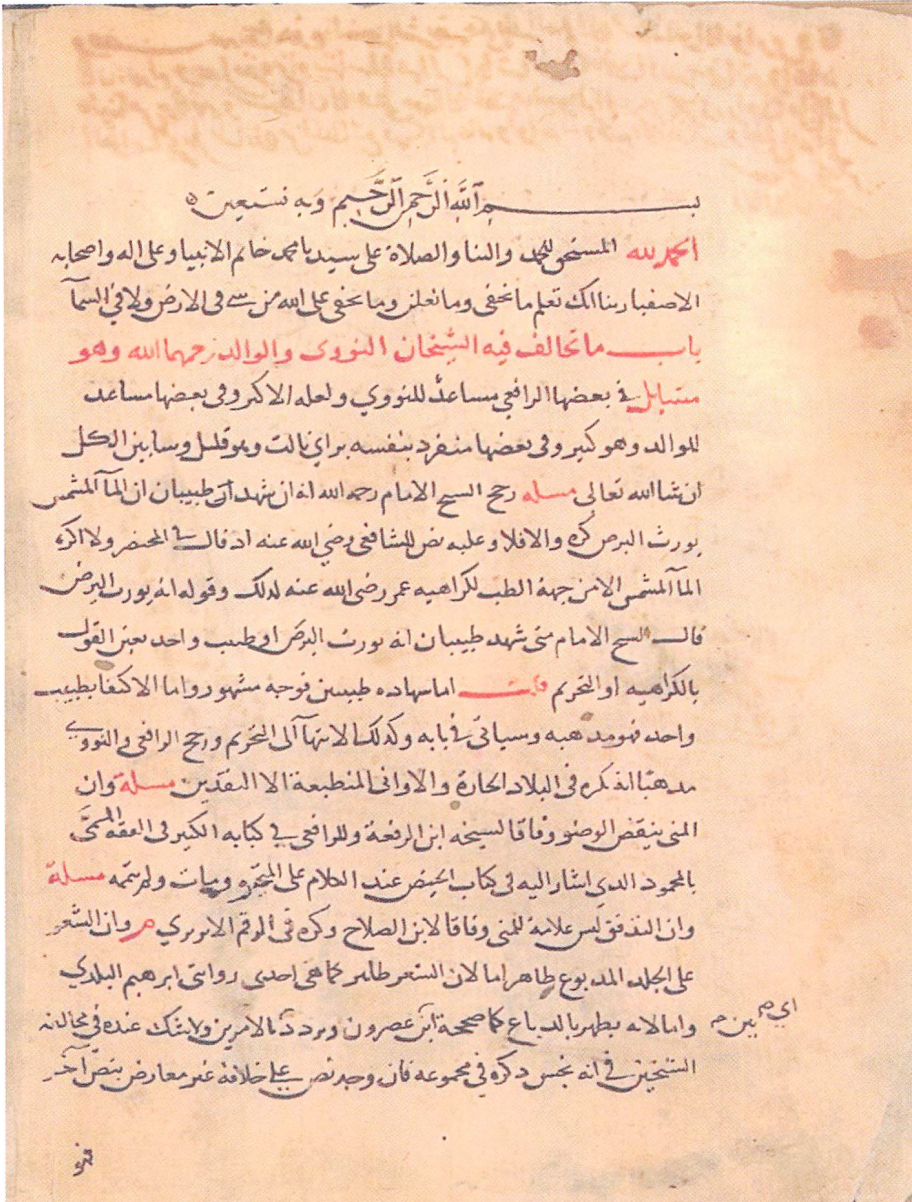 بسم الله الرَّحمن الرَّحيم وَبه نستعين
الحمد لله المستحق للحمد والثنا والصلاة على سيدنا محمد خاتم الانبيا وعلى اله واصحابه
الاصفيا ربنا انك تعلم ما نخفى وما نعلن وما يخفى على الله من شي فى الارض ولا في السمآ
باب ما تخالف فيه الشيخان النووى والوالد رحمهما الله وهو
في بعضها الرافعي مساعدٌ للنووي ولعله الاكثر وفى بعضها مساعد
للوالد وهو كثير وفى بعضها منفرد بنفسه براي ثالث وهو قليل وسابين الكل
ان شا الله تعالى مسله رجح الشيخ الامام رحمه الله انه ان شهد طبيبان ان المآ المشمس
يورث البرص كره والا فلا وعليه نص الشافعي رضي الله عنه اذ قال في المختصر ولا اكره
المآ المشمس الا من جهة الطب لكراهيه عمر رضى الله عنه لذلك وقوله انه يورث البرص
قال الشيخ الامام متى شهد طبيبان انه يورث البرص او طبيب واحد تعين القول
بالكراهيه او التحريم قلت اما شهاده طبيبين فوجه مشهور واما الاكتفا بطبيب
واحد فهو مذهبه وسياتى في بابه وكذلك الانتهآ الى التحريم ورجح الرافعي والنووي
مذهبا انه يكره فى البلاد الحارة والاوانى المنطبعة الا النقدين مسلة وان
المنى ينقض الوضو وفاقا لشيخه ابن الرفعة وللرافعي في كتابه الكبير فى الفقه المسمَّى
بالمحمود الذي اشار اليه فى كتاب الحيض عند الكلام على المتحيره ومات ولم يتمه مسلة
وان التدفق ليس علامة للمنى وفاقا لابن الصلاح وكره فى وان الشعر
على الجلد المدبوغ طاهر اما لان الشعر طاهر كما هى احدى روايتى ابرهيم البلدي
واما لانه يطهر بالدباغ كما صححه ابن عصرون وتردد الامرين ولا شك عنده في مخالفته
الشيخين في انه نجس ذكره في مجموعه فان وجد نص على خلافه غير معارض بنص آخر